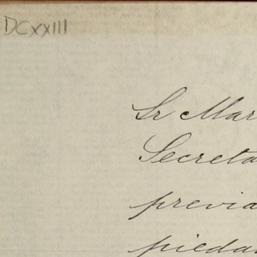 DCXXIII
Sr Mar
Secreta
previa
piedad